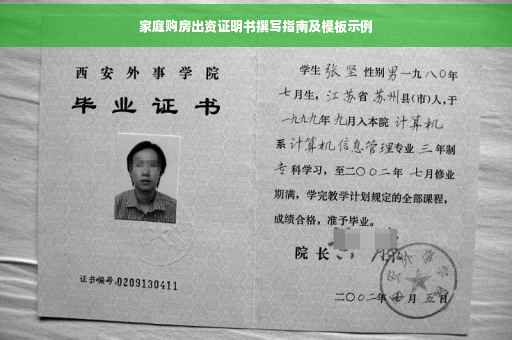 家庭购房出资证明书撰写指南及模板示例
西安外事学院
毕业证书
证书编号:0209130411
学生 张坚 性别 男 一九八〇年
七月生，江苏省 苏州县(市)人，于
一九九九年 九月入本院 计算机
系 计算机信息管理专业 三 年制
专 科学习，至二〇〇二年 七月修业
期满，学完教学计划规定的全部课程，
成绩合格，准予毕业。
院长
二〇〇二年 月 五 日